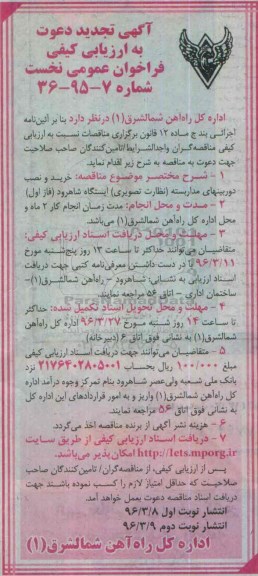 آگهی تجدید دعوت
به ارزیابی کیفی
فراخوان عمومی نخست
شماره ۷-۹۵-۳۶
اداره کل راه‌آهن شمالشرق(۱) درنظر دارد بنا بر آئین‌نامه
اجرائی بند ج ماده ۱۲ قانون برگزاری مناقصات نسبت به ارزیابی
کیفی مناقصه‌گران واجدالشرایط/تامین‌کنندگان صاحب صلاحیت
جهت دعوت به مناقصه به شرح زیر اقدام نماید.
۱ - شرح مختصر موضوع مناقصه: خرید و نصب
دوربینهای مداربسته (نظارت تصویری) ایستگاه شاهرود (فاز اول)
۲ - مدت و محل انجام: مدت زمان انجام کار ۲ ماه و
محل اداره کل راه‌آهن شمالشرق(۱) می‌باشد.
۳ - مهلت و محل دریافت اسناد ارزیابی کیفی:
متقاضیان می‌توانند حداکثر تا ساعت ۱۳ روز پنج‌شنبه مورخ
۹۶/۳/۱۱ با در دست داشتن معرفی‌نامه کتبی جهت دریافت
اسناد ارزیابی به نشانی: شاهرود - راه‌آهن شمالشرق(۱)-
ساختمان اداری - اتاق ۵۶ مراجعه نمایند.
۴ - مهلت و محل تحویل اسناد تکمیل شده: حداکثر
تا ساعت ۱۴ روز شنبه مورخ ۹۶/۳/۲۷ اداره کل راه‌آهن
شمالشرق(۱) به نشانی فوق اتاق ۶ (دبیرخانه)
۵ - متقاضیان می‌توانند جهت دریافت اسناد ارزیابی کیفی
مبلغ ۱۰۰/۰۰۰ ریال بحساب ۲۱۷۶۴۰۲۸۰۵۰۰۱ نزد
بانک ملی شعبه ولی‌عصر شاهرود بنام تمرکز وجوه درآمد اداره
کل راه‌آهن شمالشرق(۱) واریز و به امور قراردادهای این اداره کل
به نشانی فوق اتاق ۵۶ مراجعه نمایند.
۶ - هزینه نشر آگهی از برنده مناقصه اخذ می‌گردد.
۷ - دریافت اسناد ارزیابی کیفی از طریق سایت
http://iets.mporg.ir امکان‌پذیر می‌باشد.
پس از ارزیابی کیفی، از مناقصه‌گران/ تامین‌کنندگان صاحب
صلاحیت که حداقل امتیاز لازم را کسب نموده باشند جهت
دریافت اسناد مناقصه دعوت بعمل خواهد آمد.
انتشار نوبت اول ۹۶/۳/۸
انتشار نوبت دوم ۹۶/۳/۹
اداره کل راه‌آهن شمالشرق(۱)